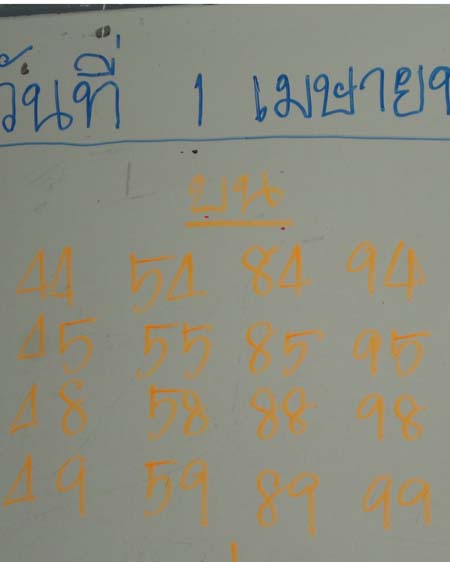 วันที่ 1 เมษายน
บน
44 54 84 94
45 55 85 95
48 58 88 98
49 59 89 99